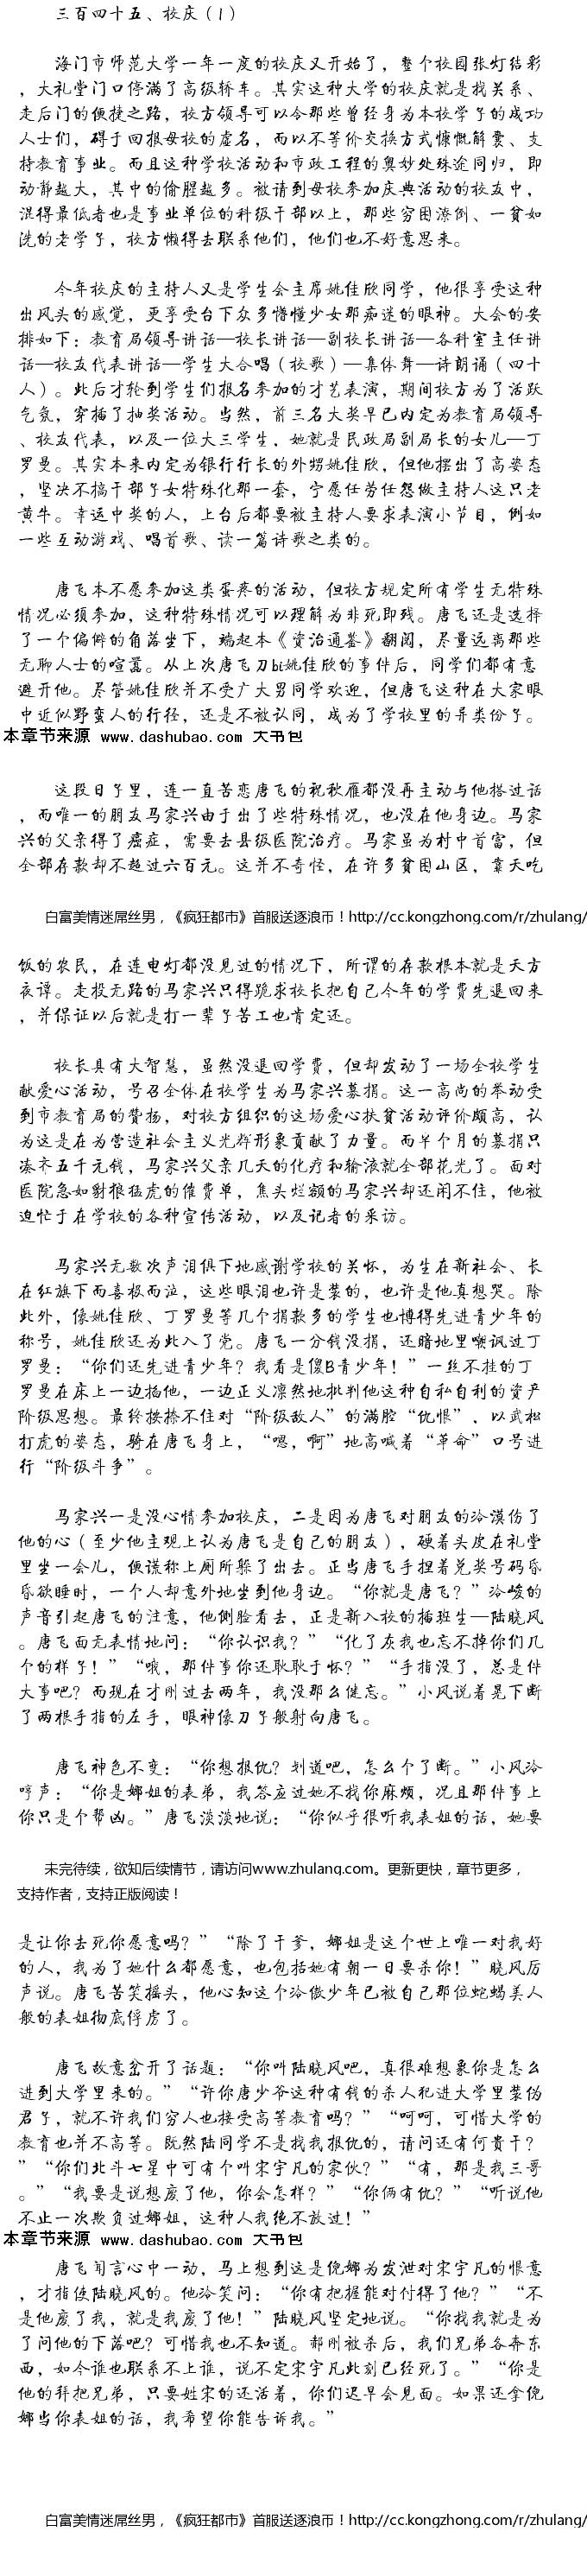 三百四十五、校庆（1）
海门市师范大学一年一度的校庆又开始了，整个校园张灯结彩
，大礼堂门口停满了高级轿车。其实这种大学的校庆就是找关系、
走后门的便捷之路，校方领导可以令那些曾经身为本校学子的成功
人士们，碍于回报母校的虚名，而以不等价交换方式慷慨解囊、支
持教育事业。而且这种学校活动和市政工程的奥妙处殊途同归，即
动静越大，其中的偷腥越多。被请到母校参加庆典活动的校友中，
混得最低者也是事业单位的科级干部以上，那些穷困潦倒、一贫如
洗的老学子，校方懒得去联系他们，他们也不好意思来。
今年校庆的主持人又是学生会主席姚佳欣同学，他很享受这种
出风头的感觉，更享受台下众多懵懂少女那痴迷的眼神。大会的安
排如下：教育局领导讲话—校长讲话—副校长讲话—各科室主任讲
话—校友代表讲话—学生大合唱（校歌）—集体舞—诗朗诵（四十
人）。此后才轮到学生们报名参加的才艺表演，期间校方为了活跃
气氛，穿插了抽奖活动。当然，前三名大奖早已内定为教育局领导
、校友代表，以及一位大三学生，她就是民政局副局长的女儿—丁
罗曼。其实本来内定为银行行长的外甥姚佳欣，但他摆出了高姿态
，坚决不搞干部子女特殊化那一套，宁愿任劳任怨做主持人这只老
黄牛。幸运中奖的人，上台后都要被主持人要求表演小节目，例如
一些互动游戏、唱首歌、读一篇诗歌之类的。
唐飞本不愿参加这类蛋疼的活动，但校方规定所有学生无特殊
情况必须参加，这种特殊情况可以理解为非死即残。唐飞还是选择
了一个偏僻的角落坐下，端起本《资治通鉴》翻阅，尽量远离那些
无聊人士的喧嚣。从上次唐飞刀bi姚佳欣的事件后，同学们都有意
避开他。尽管姚佳欣并不受广大男同学欢迎，但唐飞这种在大家眼
中近似野蛮人的行径，还是不被认同，成为了学校里的异类份子。
本章节来源 www.dashubao.com 大书包
这段日子里，连一直苦恋唐飞的祝秋雁都没再主动与他搭过话
，而唯一的朋友马家兴由于出了些特殊情况，也没在他身边。马家
兴的父亲得了癌症，需要去县级医院治疗。马家虽为村中首富，但
全部存款却不超过六百元。这并不奇怪，在许多贫困山区，靠天吃
白富美情迷屌丝男，《疯狂都市》首服送逐浪币！http://cc.kongzhong.com/r/zhulang/
饭的农民，在连电灯都没见过的情况下，所谓的存款根本就是天方
夜谭。走投无路的马家兴只得跪求校长把自己今年的学费先退回来
，并保证以后就是打一辈子苦工也肯定还。
校长具有大智慧，虽然没退回学费，但却发动了一场全校学生
献爱心活动，号召全体在校学生为马家兴募捐。这一高尚的举动受
到市教育局的赞扬，对校方组织的这场爱心扶贫活动评价颇高，认
为这是在为营造社会主义光辉形象贡献了力量。而半个月的募捐只
凑齐五千元钱，马家兴父亲几天的化疗和输液就全部花光了。面对
医院急如豺狼猛虎的催费单，焦头烂额的马家兴却还闲不住，他被
迫忙于在学校的各种宣传活动，以及记者的采访。
马家兴无数次声泪俱下地感谢学校的关怀，为生在新社会、长
在红旗下而喜极而泣，这些眼泪也许是装的，也许是他真想哭。除
此外，像姚佳欣、丁罗曼等几个捐款多的学生也博得先进青少年的
称号，姚佳欣还为此入了党。唐飞一分钱没捐，还暗地里嘲讽过丁
罗曼：“你们还先进青少年？我看是傻B青少年！”一丝不挂的丁
罗曼在床上一边掐他，一边正义凛然地批判他这种自私自利的资产
阶级思想。最终按捺不住对“阶级敌人”的满腔“仇恨”，以武松
打虎的姿态，骑在唐飞身上，“嗯，啊”地高喊着“革命”口号进
行“阶级斗争”。
马家兴一是没心情参加校庆，二是因为唐飞对朋友的冷漠伤了
他的心（至少他主观上认为唐飞是自己的朋友），硬着头皮在礼堂
里坐一会儿，便谎称上厕所躲了出去。正当唐飞手捏着兑奖号码昏
昏欲睡时，一个人却意外地坐到他身边。“你就是唐飞？”冷峻的
声音引起唐飞的注意，他侧脸看去，正是新入校的插班生—陆晓风
。唐飞面无表情地问：“你认识我？”“化了灰我也忘不掉你们几
个的样子！”“哦，那件事你还耿耿于怀？”“手指没了，总是件
大事吧？而现在才刚过去两年，我没那么健忘。”小风说着晃下断
了两根手指的左手，眼神像刀子般射向唐飞。
唐飞神色不变：“你想报仇？划道吧，怎么个了断。”小风冷
哼声：“你是娜姐的表弟，我答应过她不找你麻烦，况且那件事上
你只是个帮凶。”唐飞淡淡地说：“你似乎很听我表姐的话，她要
未完待续，欲知后续情节，请访问www.zhulang.com。更新更快，章节更多，
支持作者，支持正版阅读！
是让你去死你愿意吗？”“除了干爹，娜姐是这个世上唯一对我好
的人，我为了她什么都愿意，也包括她有朝一日要杀你！”晓风厉
声说。唐飞苦笑摇头，他心知这个冷傲少年已被自己那位蛇蝎美人
般的表姐彻底俘虏了。
唐飞故意岔开了话题：“你叫陆晓风吧，真很难想象你是怎么
进到大学里来的。”“许你唐少爷这种有钱的杀人犯进大学里装伪
君子，就不许我们穷人也接受高等教育吗？”“呵呵，可惜大学的
教育也并不高等。既然陆同学不是找我报仇的，请问还有何贵干？
”“你们北斗七星中可有个叫宋宇凡的家伙？”“有，那是我三哥
。”“我要是说想废了他，你会怎样？”“你俩有仇？”“听说他
不止一次欺负过娜姐，这种人我绝不放过！”
本章节来源 www.dashubao.com 大书包
唐飞闻言心中一动，马上想到这是倪娜为发泄对宋宇凡的恨意
，才指使陆晓风的。他冷笑问：“你有把握能对付得了他？”“不
是他废了我，就是我废了他！”陆晓风坚定地说。“你找我就是为
了问他的下落吧？可惜我也不知道。郝刚被杀后，我们兄弟各奔东
西，如今谁也联系不上谁，说不定宋宇凡此刻已经死了。”“你是
他的拜把兄弟，只要姓宋的还活着，你们迟早会见面。如果还拿倪
娜当你表姐的话，我希望你能告诉我。”
白富美情迷屌丝男，《疯狂都市》首服送逐浪币！http://cc.kongzhong.com/r/zhulang/